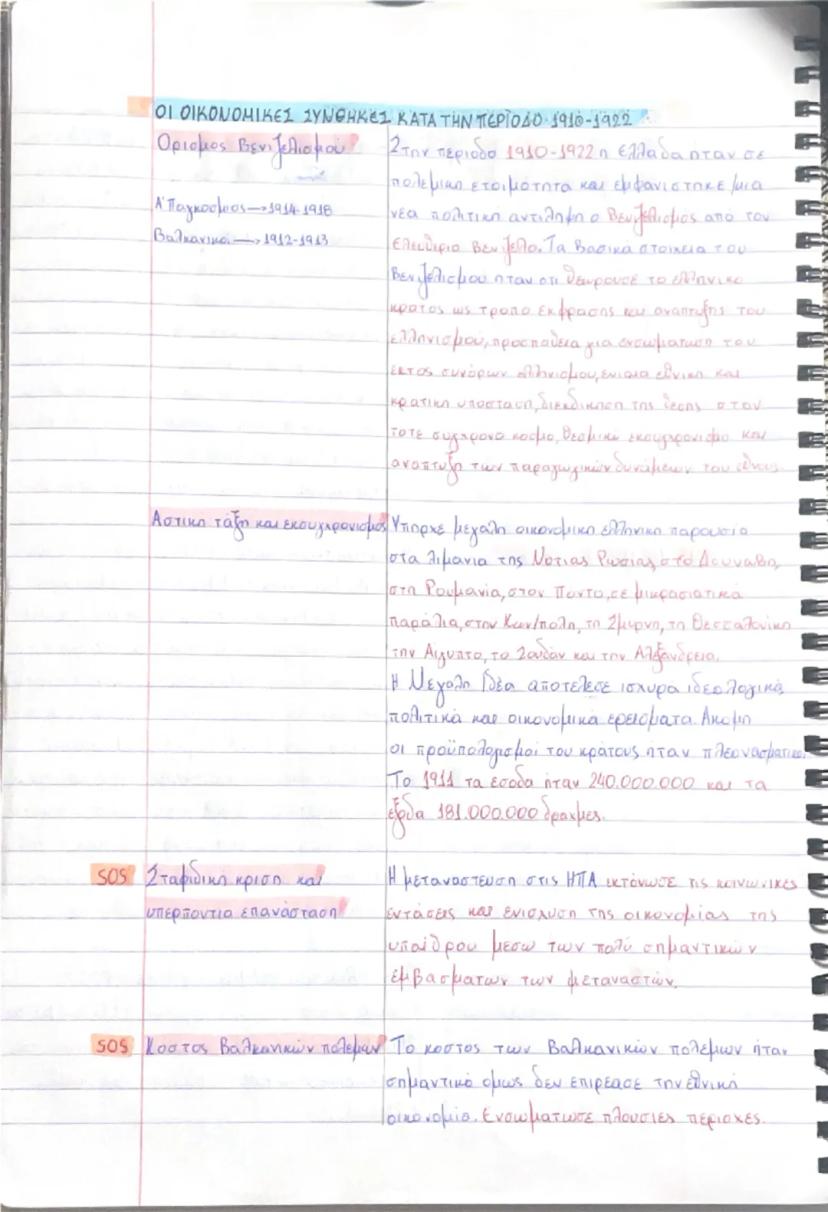 ΟΙ ΟΙΚΟΝΟΜΙΚΕΣ ΣΥΝΘΗΚΕΣ ΚΑΤΑ ΤΗΝ ΠΕΡΙΟΔΟ 1910-1922
Ορισμος Βενιζελισμού
Α' Παγκοσμιος → 1914-1918
Βαλκανικοι → 1912-1913
Στην περίοδο 1910-1922 η Ελλάδα ηταν σε
πολεμικη ετοιμότητα και εμφανιστηκε μια
νέα πολιτικη αντιληψη ο Βενιζελισμος από τον
Ελευθεριο Βενιζελο. Τα βασικα στοιχεια του
Βενιζελισμου ηταν οτι θεωρουσε το ελληνικο
κρατος ως τροπο έκφρασης και αναπτυξης του
ελληνισμου, προσπαθεια για ενσωματωση του
εκτος συνόρων ελληνισμου, ενιαια εθνικη και
κρατικη υποσταση, διεκδικηση της θεσης στον
τοτε συγχρονο κοσμο, θεσμικο εκσυγχρονισμο και
αναπτυξη των παραγωγικών δυνάμεων του εθνους
Αστικη τάξη και εκσυγχρονισμος
Υπηρχε μεγαλη οικονομικη ελληνικη παρουσια
στα λιμανια της Νοτιας Ρωσιας, στο Δουναβη,
στη Ρουμανία, στον Ποντο, σε μικρασιατικα
παράλια, στην Κων/πολη, τη Σμυρνη, τη Θεσσαλονικη
την Αιγυπτο, το Σουδάν και την Αλεξανδρεια.
Η Μεγαλη Ιδέα αποτέλεσε ισχυρα ιδεολογικα,
πολιτικα και οικονομικα ερεισματα. Ακομη
οι προϋπολογισμοι του κράτους ηταν πλεονασματικοι.
Το 1911 τα έσοδα ήταν 240.000.000 και τα
έξοδα 181.000.000 δραχμες.
SOS Σταφιδικη κριση και
υπερποντια επανάσταση
Η μεταναστευση στις ΗΠΑ εκτόνωσε τις κοινωνικες
εντάσεις και ενισχυση της οικονομίας της
υπαίθρου μεσω των πολύ σημαντικών
εμβασματων των μεταναστών.
SOS Κοστος Βαλκανικών πολεμων
Το κοστος των Βαλκανικών πολεμων ηταν
σημαντικο ομως δεν επιρέασε την εθνικη
οικονομια. Ενσωματωσε πλουσιες περιοχες.